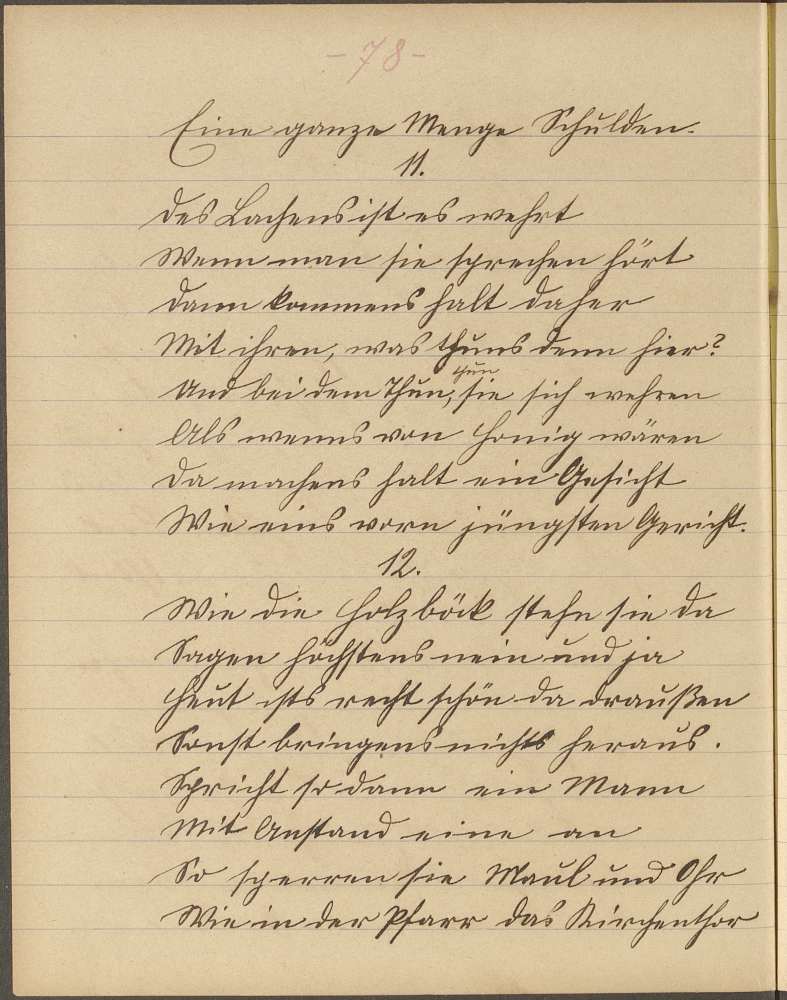 - 78 -
Eine ganze Menge Schulden.
11.
Des Lachens ist es wehrt
Wenn man sie sprechen hört
Dann kommens halt daher
Mit ihren, was thuns denn hier?
Und bei dem Thun, thun sie sich wehren
Als wenns von Honig wären
Da machens halt ein Gesicht
Wie eins vorn jüngsten Gericht.
12.
Wie die Holzböck stehn sie da
Sagen höchstens nein und ja
Heut ists recht schön da draußen
Sonst bringens nichts heraus.
Spricht so dann ein Mann
Mit Anstand eine an
So sperren sie Maul und Ohr
Wie in der Pfarr das Kirchenthor